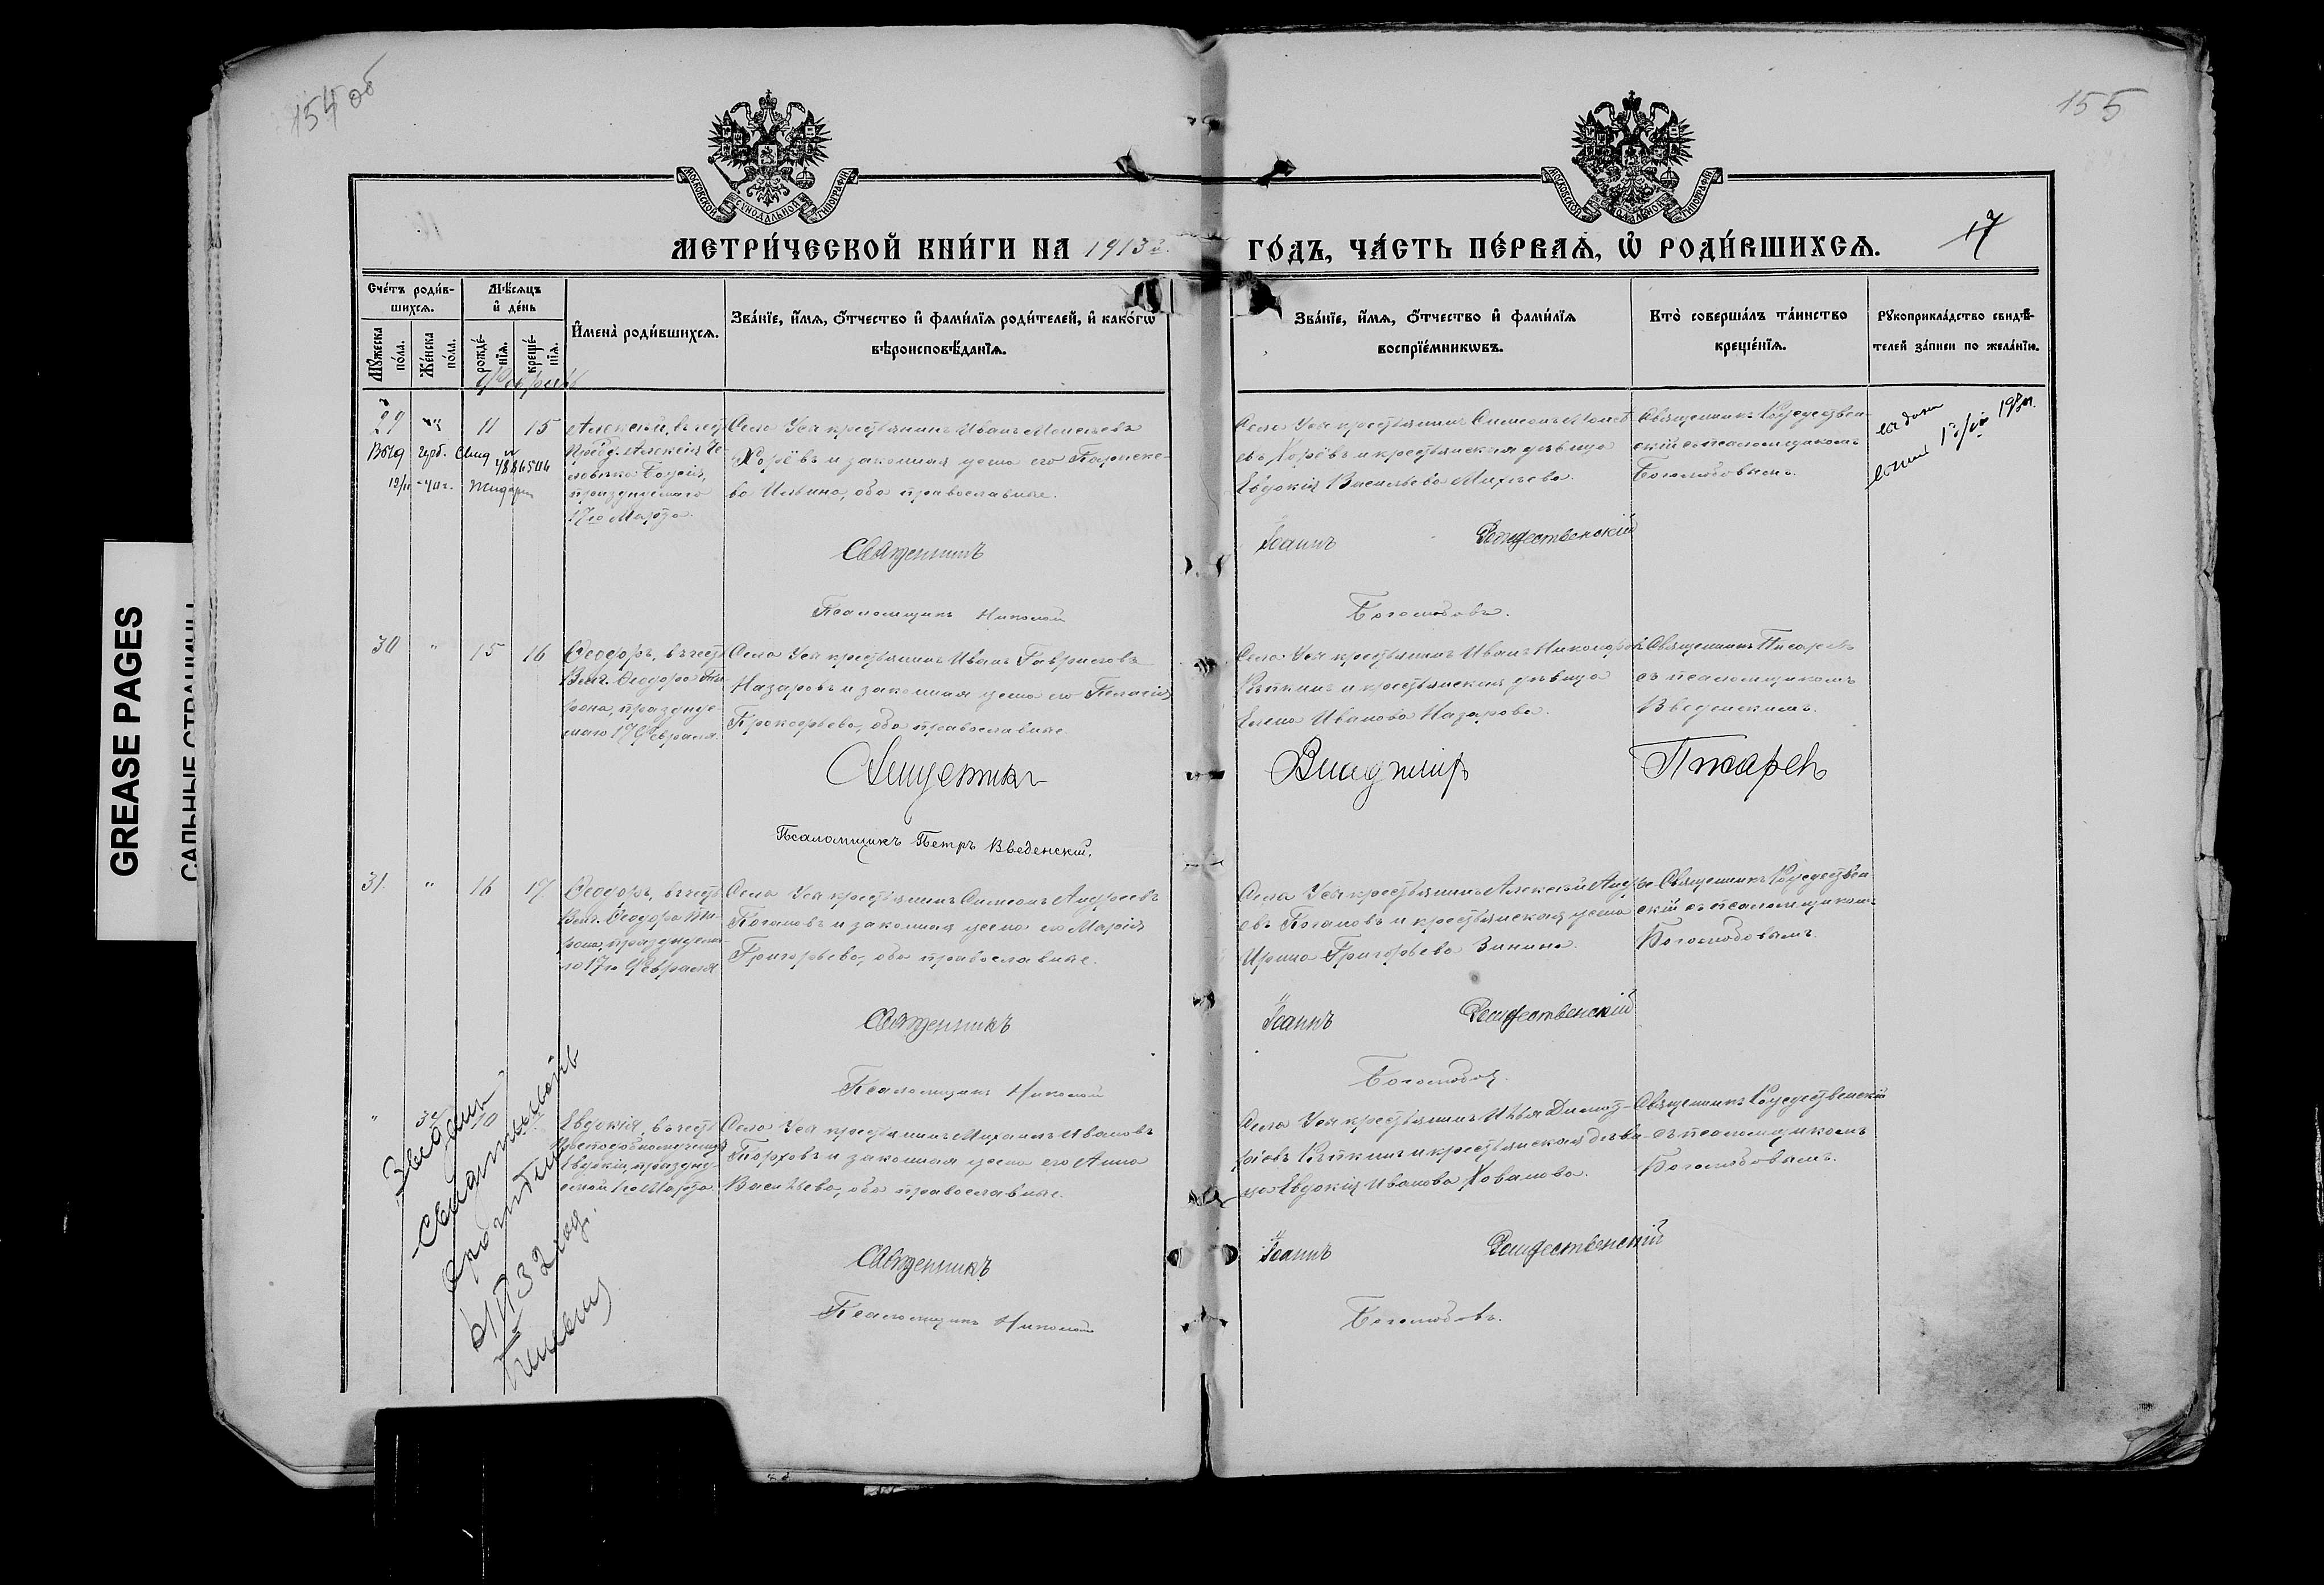 154 об
155
МОСКОВСКОЙ СѴНОДАЛЬНОЙ ТИПОГРАФІИ
МОСКОВСКОЙ СѴНОДАЛЬНОЙ ТИПОГРАФІИ
МЕТРИ́ЧЕСКОЙ КНИ́ГИ НА 1913 г.
ГО́ДЪ, ЧА́СТЬ ПЕ́РВАѦ, Ѡ҆ РОДИ́ВШИХСѦ.
17
Сче́тъ роди́в-
шихсѧ.
Мѣ́сѧцъ
и҆ де́нь
Мꙋ́жеска
по́ла.
Же́нска
по́ла.
рожде́-
нїѧ.
креще́-
нїѧ.
И҆мена̀ роди́вшихсѧ.
Зва́нїе, и҆́мѧ, ѻ҆́тчество и҆ фами́лїѧ роди́телей, и҆ како́гѡ
вѣроисповѣ́данїѧ.
Зва́нїе, и҆́мѧ, ѻ҆́тчество и҆ фами́лїѧ
воспрїе́мникѡвъ.
Кто̀ соверша́лъ та́инство
креще́нїѧ.
Рꙋкоприкла́дство свидѣ́-
телей за́писи по жела́нїю.
Февраль
29 11 15
Алексѣй, въ честь
Препод. Алексія Че-
ловѣка Божія,
празднуемаго
17го Марта.
Села Уса крестьянинъ Иванъ Моисеевъ
Хорёвъ и законная жена его Параске-
ва Ильина, оба православные.
Села Усы крестьянинъ Симеонъ Моисе-
евъ Хорёвъ и крестьянская дѣвица
Евдокія Васильева Михѣева.
Священникъ Рождествен-
скій съ псаломщикомъ
Боголюбовымъ.
Священникъ
Іоаннъ Рождественскій
Псаломщикъ Николай
Боголюбовъ.
30 " 15 16
Ѳеодоръ, въ честь
Влмч. Ѳеодора Ти-
рона, празднуе-
маго 17 Февраля.
Села Усы крестьянинъ Иванъ Гавриловъ
Назаровъ и законная жена его Пелагія
Прокофьева, оба православные.
Села Усы крестьянинъ Иванъ
Рѣпкинъ и крестьянская дѣвица
Елена Иванова Назарова.
Священникъ Писаревъ
съ псаломщикомъ
Введенскимъ.
Священникъ
Владимір Писаревъ
Псаломщикъ Петръ Введенскій.
31. " 16 17
Ѳеодоръ, въ честь
Влмч. Ѳеодора Ти-
рона, празднуема-
го 17го Февраля
Села Усы крестьянинъ Симеонъ Андреевъ
Потаповъ и законная жена его Марія
Григорьева, оба православные.
Села Усы крестьянинъ Алексѣй Андре-
евъ Потаповъ и крестьянская жена
Ирина Григорьева Зинина.
Священникъ Рождествен-
скій съ псаломщикомъ
Боголюбовымъ.
Священникъ
Іоаннъ Рождественскій
Псаломщикъ Николай
Боголюбов.
"
Евдокія, въ честь
Преподобномученицы
Евдокіи, праздну-
емой 1го Марта.
Села Усы крестьянинъ Михаилъ Ивановъ
Порховъ и законная жена его Анна
Васильева, оба православные.
Села Усы крестьянинъ Илья Димит-
ріевъ Рѣпкинъ и крестьянская дѣви-
ца Евдокія Иванова Ховалова.
Священникъ Рождественскій
съ псаломщикомъ
Боголюбовымъ.
Священникъ
Іоаннъ Рождественскій
Псаломщикъ Николай
Боголюбовъ.
GREASE PAGES
САЛЬНЫЕ СТРАНИЦЫ